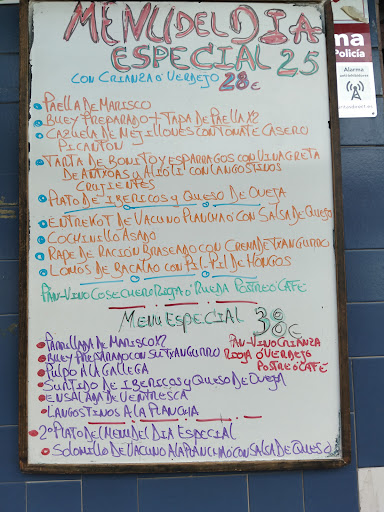 MENU DEL DIA
ESPECIAL 25
CON CRIANZA O VERDEJO 28€
PAELLA DE MARISCO
BUEY PREPARADO + TAPA DE PAELLA X2
CAZUELA DE MEJILLONES CON TOMATE CASERO
PICANTON
TARTA DE BONITO Y ESPARRAGOS CON VINAGRETA
DE ANTXOAS Y ALIOLI CON LANGOSTINOS
CRUJIENTES
PLATO DE IBERICOS Y QUESO DE OVEJA
ENTREKOT DE VACUNO PLANCHA O CON SALSA DE QUESO
COCHINILLO ASADO
RAPE DE RACIÓN BRASEADO CON CREMA DE TXANGURRO
LOMOS DE BACALAO CON PIL-PIL DE HONGOS
PAN-VINO COSECHERO RIOJA O RUEDA POSTRE O CAFÉ
MENU ESPECIAL 38€
PARRILLADA DE MARISCO X2
BUEY PREPARADO CON SU TXANGURRO
PULPO A LA GALLEGA
SURTIDO DE IBERICOS Y QUESO DE OVEJA
ENSALADA DE VENTRESCA
LANGOSTINOS A LA PLANCHA
PAN-VINO CRIANZA
RIOJA O VERDEJO
POSTRE O CAFÉ
2º PLATO DEL MENU DEL DIA ESPECIAL
SOLOMILLO DE VACUNO A LA PLANCHA O CON SALSA DE QUESO
ma
Policía
Alarma